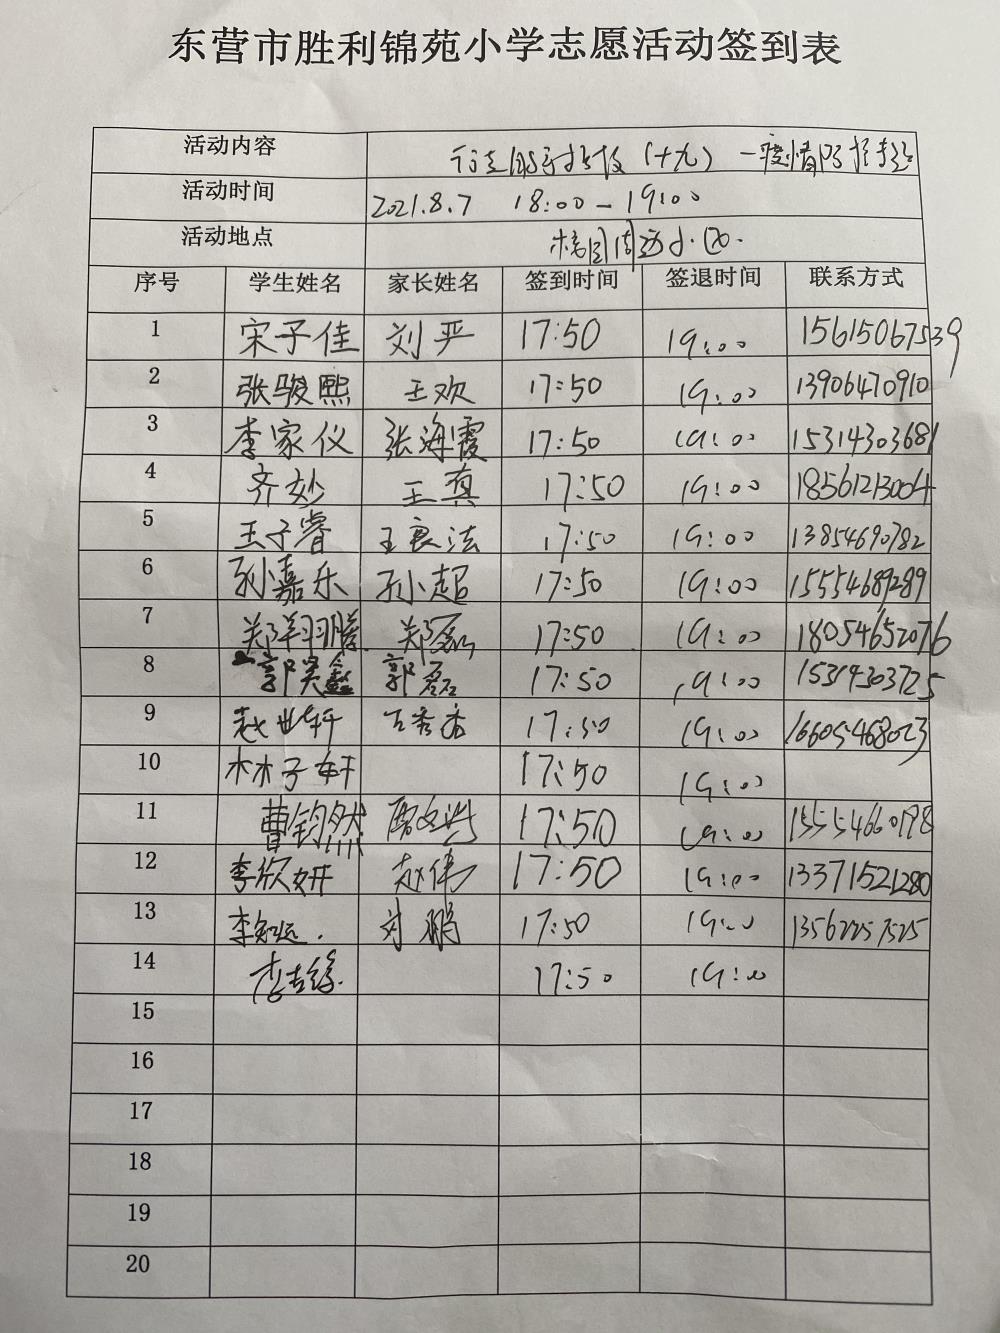 东营市胜利锦苑小学志愿活动签到表
活动内容 (十九) 一疫情防控
活动时间 2021.8.7 18:00-19:00
活动地点 周边小区.
序号 学生姓名 家长姓名 签到时间 签退时间 联系方式
1 宋子佳 刘严 17:50 19:00 15615067539
2 张骏熙 王欢 17:50 19:00 13906470910
3 李家仪 张海霞 17:50 19:00 15314303681
4 齐妙 王真 17:50 19:00 18561213004
5 王子睿 王良法 17:50 19:00 13854690782
6 孙嘉乐 孙小超 17:50 19:00 15554689289
7 郑翔腾 郑磊 17:50 19:00 18054652076
8 郭昊鑫 郭磊 17:50 19:00 15314303725
9 赵世轩 17:50 19:00 16605468023
10 林子轩 17:50 19:00
11 曹钧然 17:50 19:00 15554660198
12 李欣妍 赵伟 17:50 19:00 13371521280
13 李知远. 刘鹏 17:50 19:00 13562257525
14 17:50 19:00
15
16
17
18
19
20